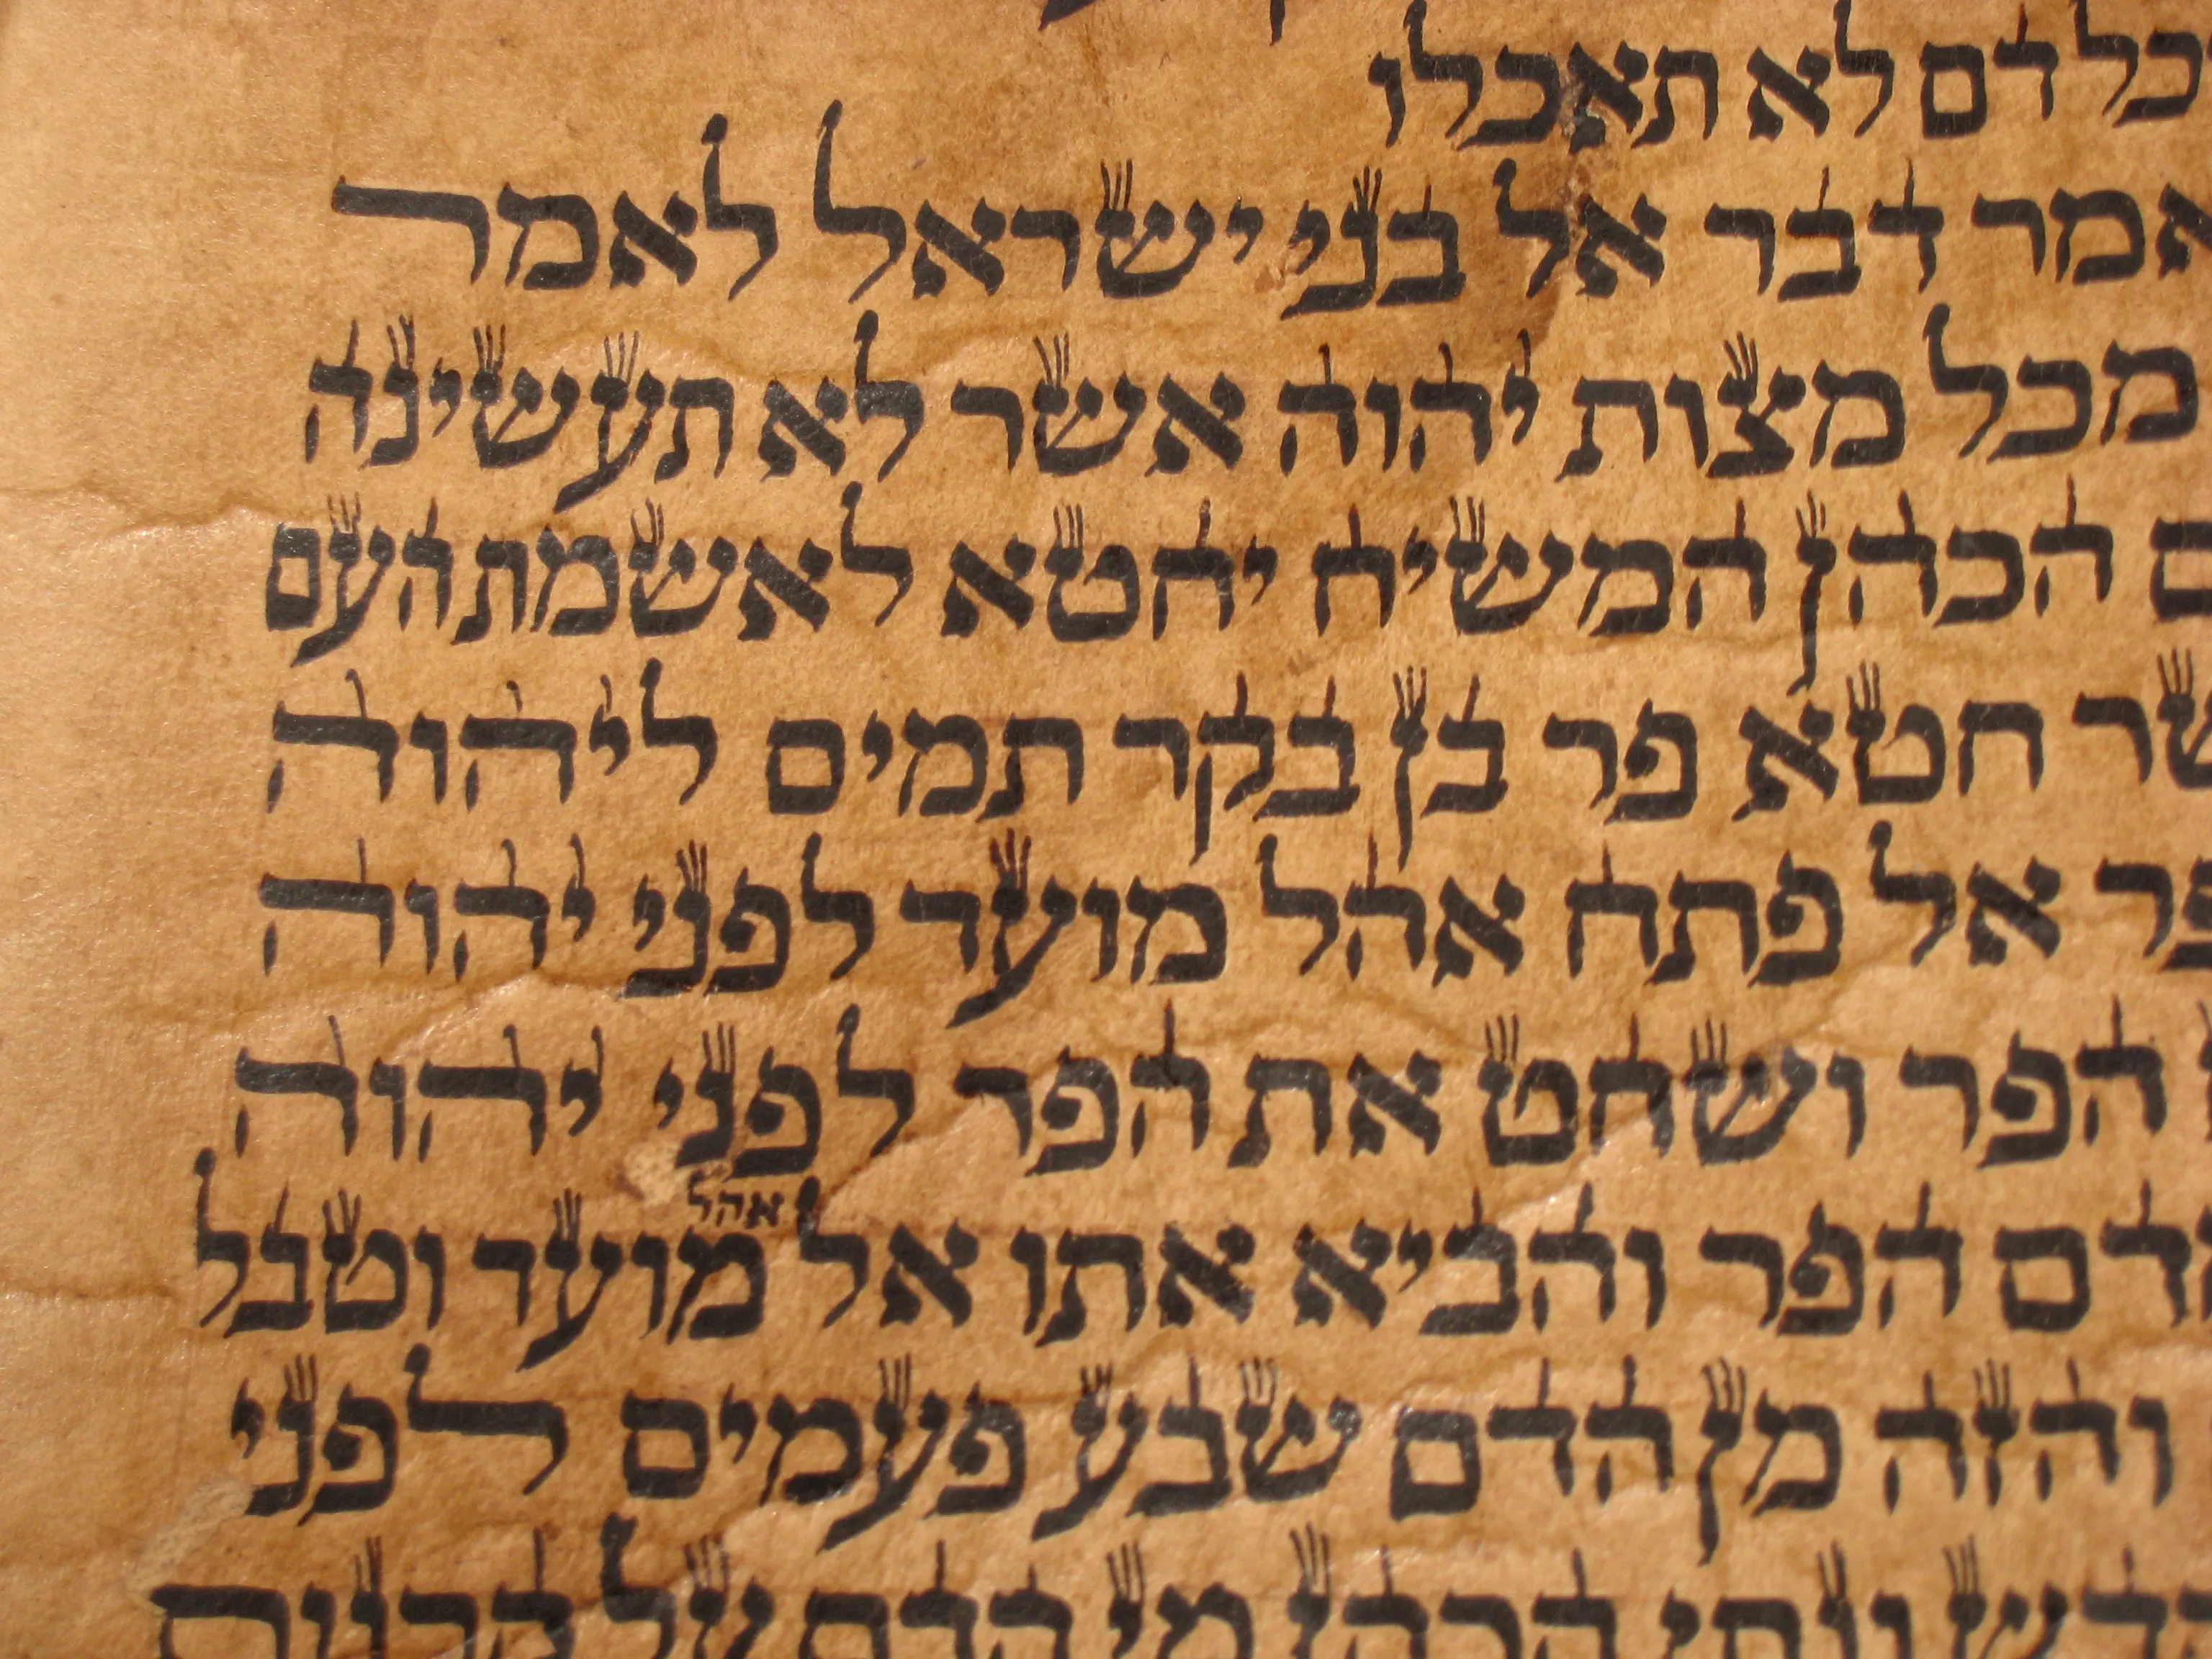 כל דם לא תאכלו
אמר דבר אל בני ישראל לאמר
מכל מצות יהוה אשר לא תעשינה
הכהן המשיח יחטא לאשמת העם
חטא פר בן בקר תמים ליהוה
אל פתח אהל מועד לפני יהוה
הפר ושחט את הפר לפני יהוה
אהל
דם הפר והביא אתו אל מועד וטבל
והזה מן הדם שבע פעמים לפני
ונתן הכהן מן הדם על קרנות